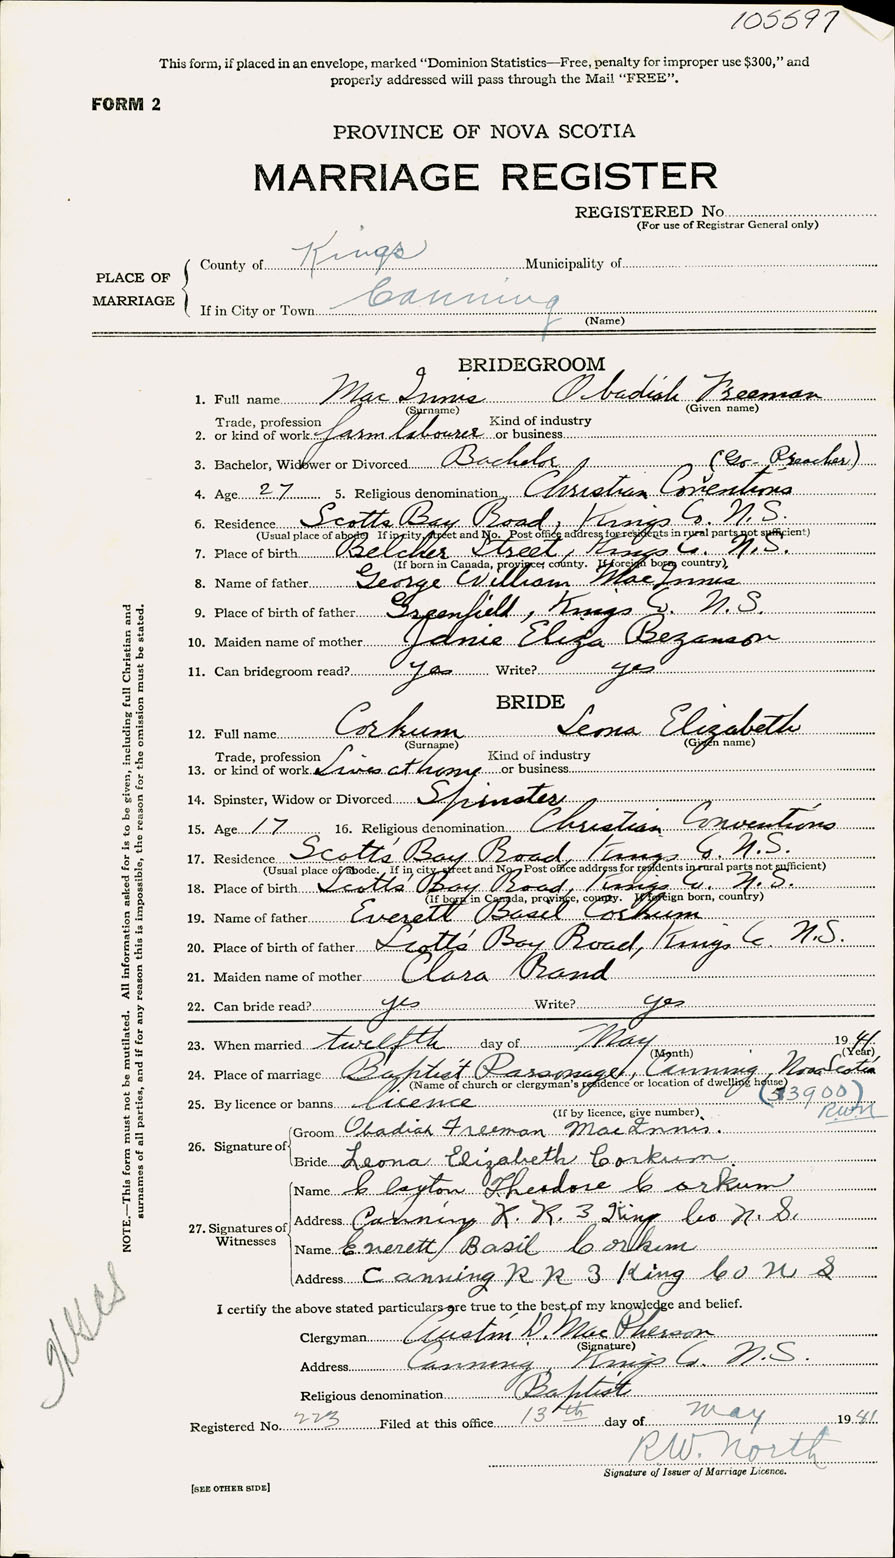 105597
This form, if placed in an envelope, marked "Dominion Statistics—Free, penalty for improper use $300," and
properly addressed will pass through the Mail "FREE".
FORM 2
PROVINCE OF NOVA SCOTIA
MARRIAGE REGISTER
REGISTERED No.
(For use of Registrar General only)
PLACE OF MARRIAGE
County of Kings Municipality of
If in City or Town Canning
(Name)
BRIDEGROOM
1. Full name Mac Innis Obadiah Freeman
(Surname) (Given name)
Trade, profession Kind of industry
2. or kind of work farm labourer or business
3. Bachelor, Widower or Divorced Bachelor (Go-Preacher)
4. Age 27 5. Religious denomination Christian Conventions
6. Residence Scotts Bay Road, Kings Co. N.S.
(Usual place of abode. If in city, street and No. Post office address for residents in rural parts not sufficient)
7. Place of birth Belcher Street, Kings Co. N.S.
(If born in Canada, province, county. If foreign born, country)
8. Name of father George William MacInnis
9. Place of birth of father Greenfield, Kings Co. N.S.
10. Maiden name of mother Janie Eliza Bezanson
11. Can bridegroom read? yes Write? yes
BRIDE
12. Full name Corkum Leona Elizabeth
(Surname) (Given name)
Trade, profession Kind of industry
13. or kind of work Lives at home or business
14. Spinster, Widow or Divorced Spinster
15. Age 17 16. Religious denomination Christian Conventions
17. Residence Scott's Bay Road, Kings Co. N.S.
(Usual place of abode. If in city, street and No. Post office address for residents in rural parts not sufficient)
18. Place of birth Scotts' Bay Road, Kings Co. N.S.
(If born in Canada, province, county. If foreign born, country)
19. Name of father Everett Basil Corkum
20. Place of birth of father Scott's Bay Road, Kings Co. N.S.
21. Maiden name of mother Clara Rand
22. Can bride read? yes Write? yes
23. When married twelfth day of May 1941
(Month) (Year)
24. Place of marriage Baptist Parsonage, Canning, Nova Scotia
(Name of church or clergyman's residence or location of dwelling house)
25. By licence or banns licence (53900)
(If by licence, give number) RWN
26. Signature of
Groom Obadiah Freeman MacInnis.
Bride Leona Elizabeth Corkum.
27. Signatures of Witnesses
Name Clayton Theodore Corkum
Address Canning R. R. 3 King Co N. S.
Name Everett Basil Corkum
Address Canning R R 3 King Co N S
I certify the above stated particulars are true to the best of my knowledge and belief.
Clergyman Austin D. MacPherson
(Signature)
Address Canning, Kings Co. N.S.
Religious denomination Baptist
Registered No. 223 Filed at this office 13th day of May 1941
R.W. North
Signature of Issuer of Marriage Licence.
[SEE OTHER SIDE]
NOTE.—This form must not be mutilated. All information asked for is to be given, including full Christian and
surnames of all parties, and if for any reason this is impossible, the reason for the omission must be stated.